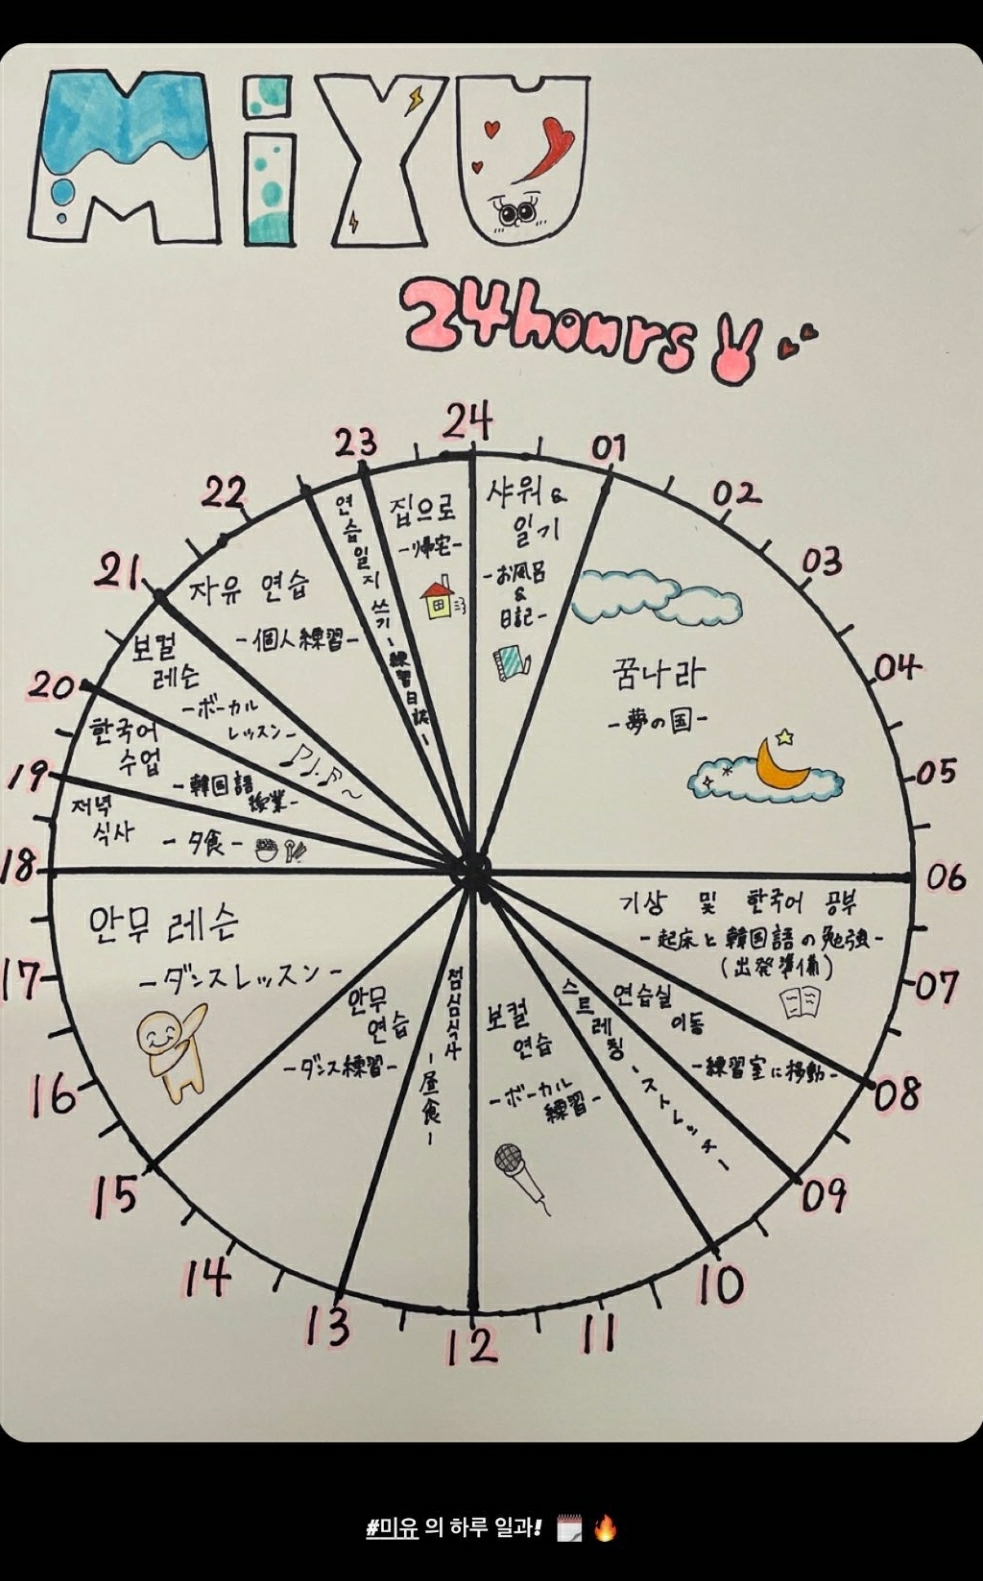 MiYU
24hours
24
01
02
03
04
05
06
07
08
09
10
11
12
13
14
15
16
17
18
19
20
21
22
23
샤워 &
일기
-お風呂
&
日記-
꿈나라
-夢の国-
기상 및 한국어 공부
-起床と韓国語の勉強-
(出発準備)
연습실
이동
-練習室に移動-
스트레칭 -ストレッチ-
보컬
연습
-ボーカル
練習-
점심식사 -昼食-
안무
연습
-ダンス練習-
안무 레슨
-ダンスレッスン-
저녁
식사
-夕食-
한국어
수업
-韓国語
授業-
보컬
레슨
-ボーカル
レッスン-
자유 연습
-個人練習-
연습일지 쓰기 -練習日誌-
집으로
-帰宅-
#미유 의 하루 일과!